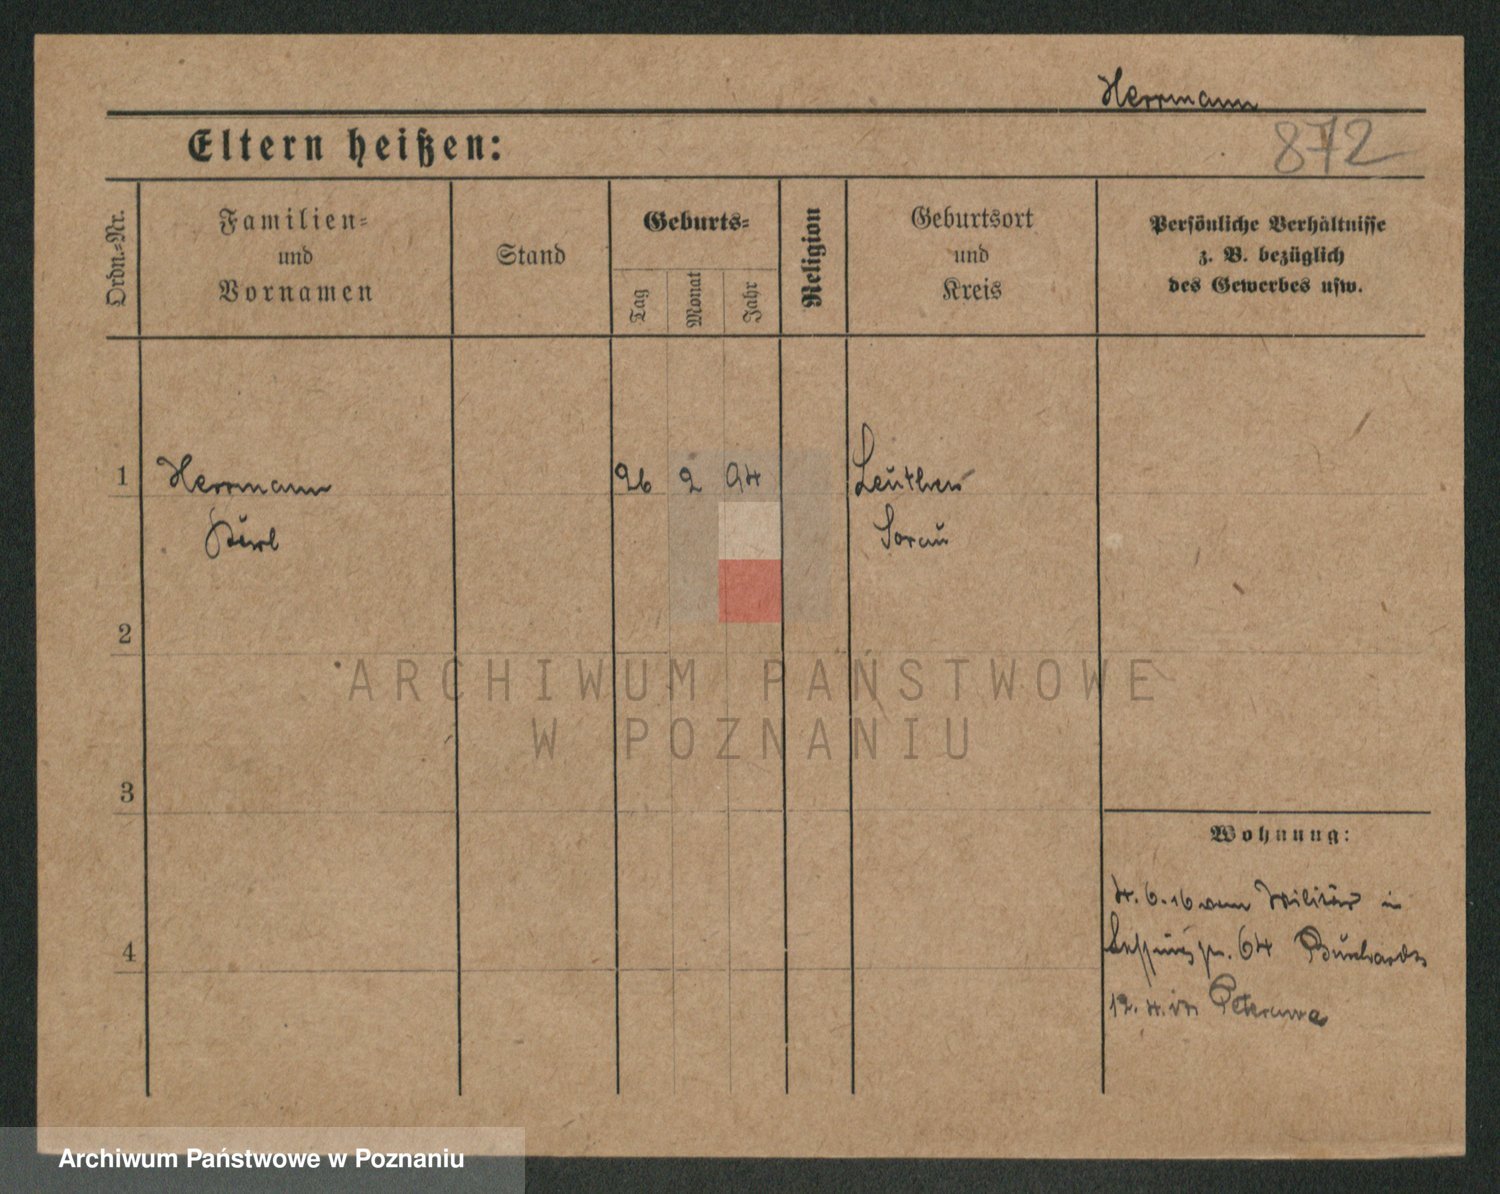 Herrmann
872
Eltern heißen:
Ordn.-Nr.
Familien-
und
Vornamen
Stand
Geburts-
Tag
Monat
Jahr
Religion
Geburtsort
und
Kreis
Persönliche Verhältnisse
z. B. bezüglich
des Gewerbes usw.
1 Herrmann 26 2 94 Leuthen
Sorau
2
3
4
ARCHIWUM PAŃSTWOWE
W POZNANIU
Wohnung:
4. 6. 16 vom Militär in
64
12. 4. in
Archiwum Państwowe w Poznaniu